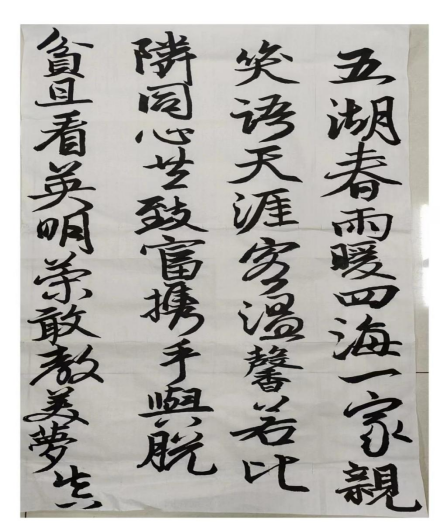 五湖春雨暖四海一家親
笑语天涯客温馨若比
隣同心共致富携手與脱
貧且看英明策敢教美夢真